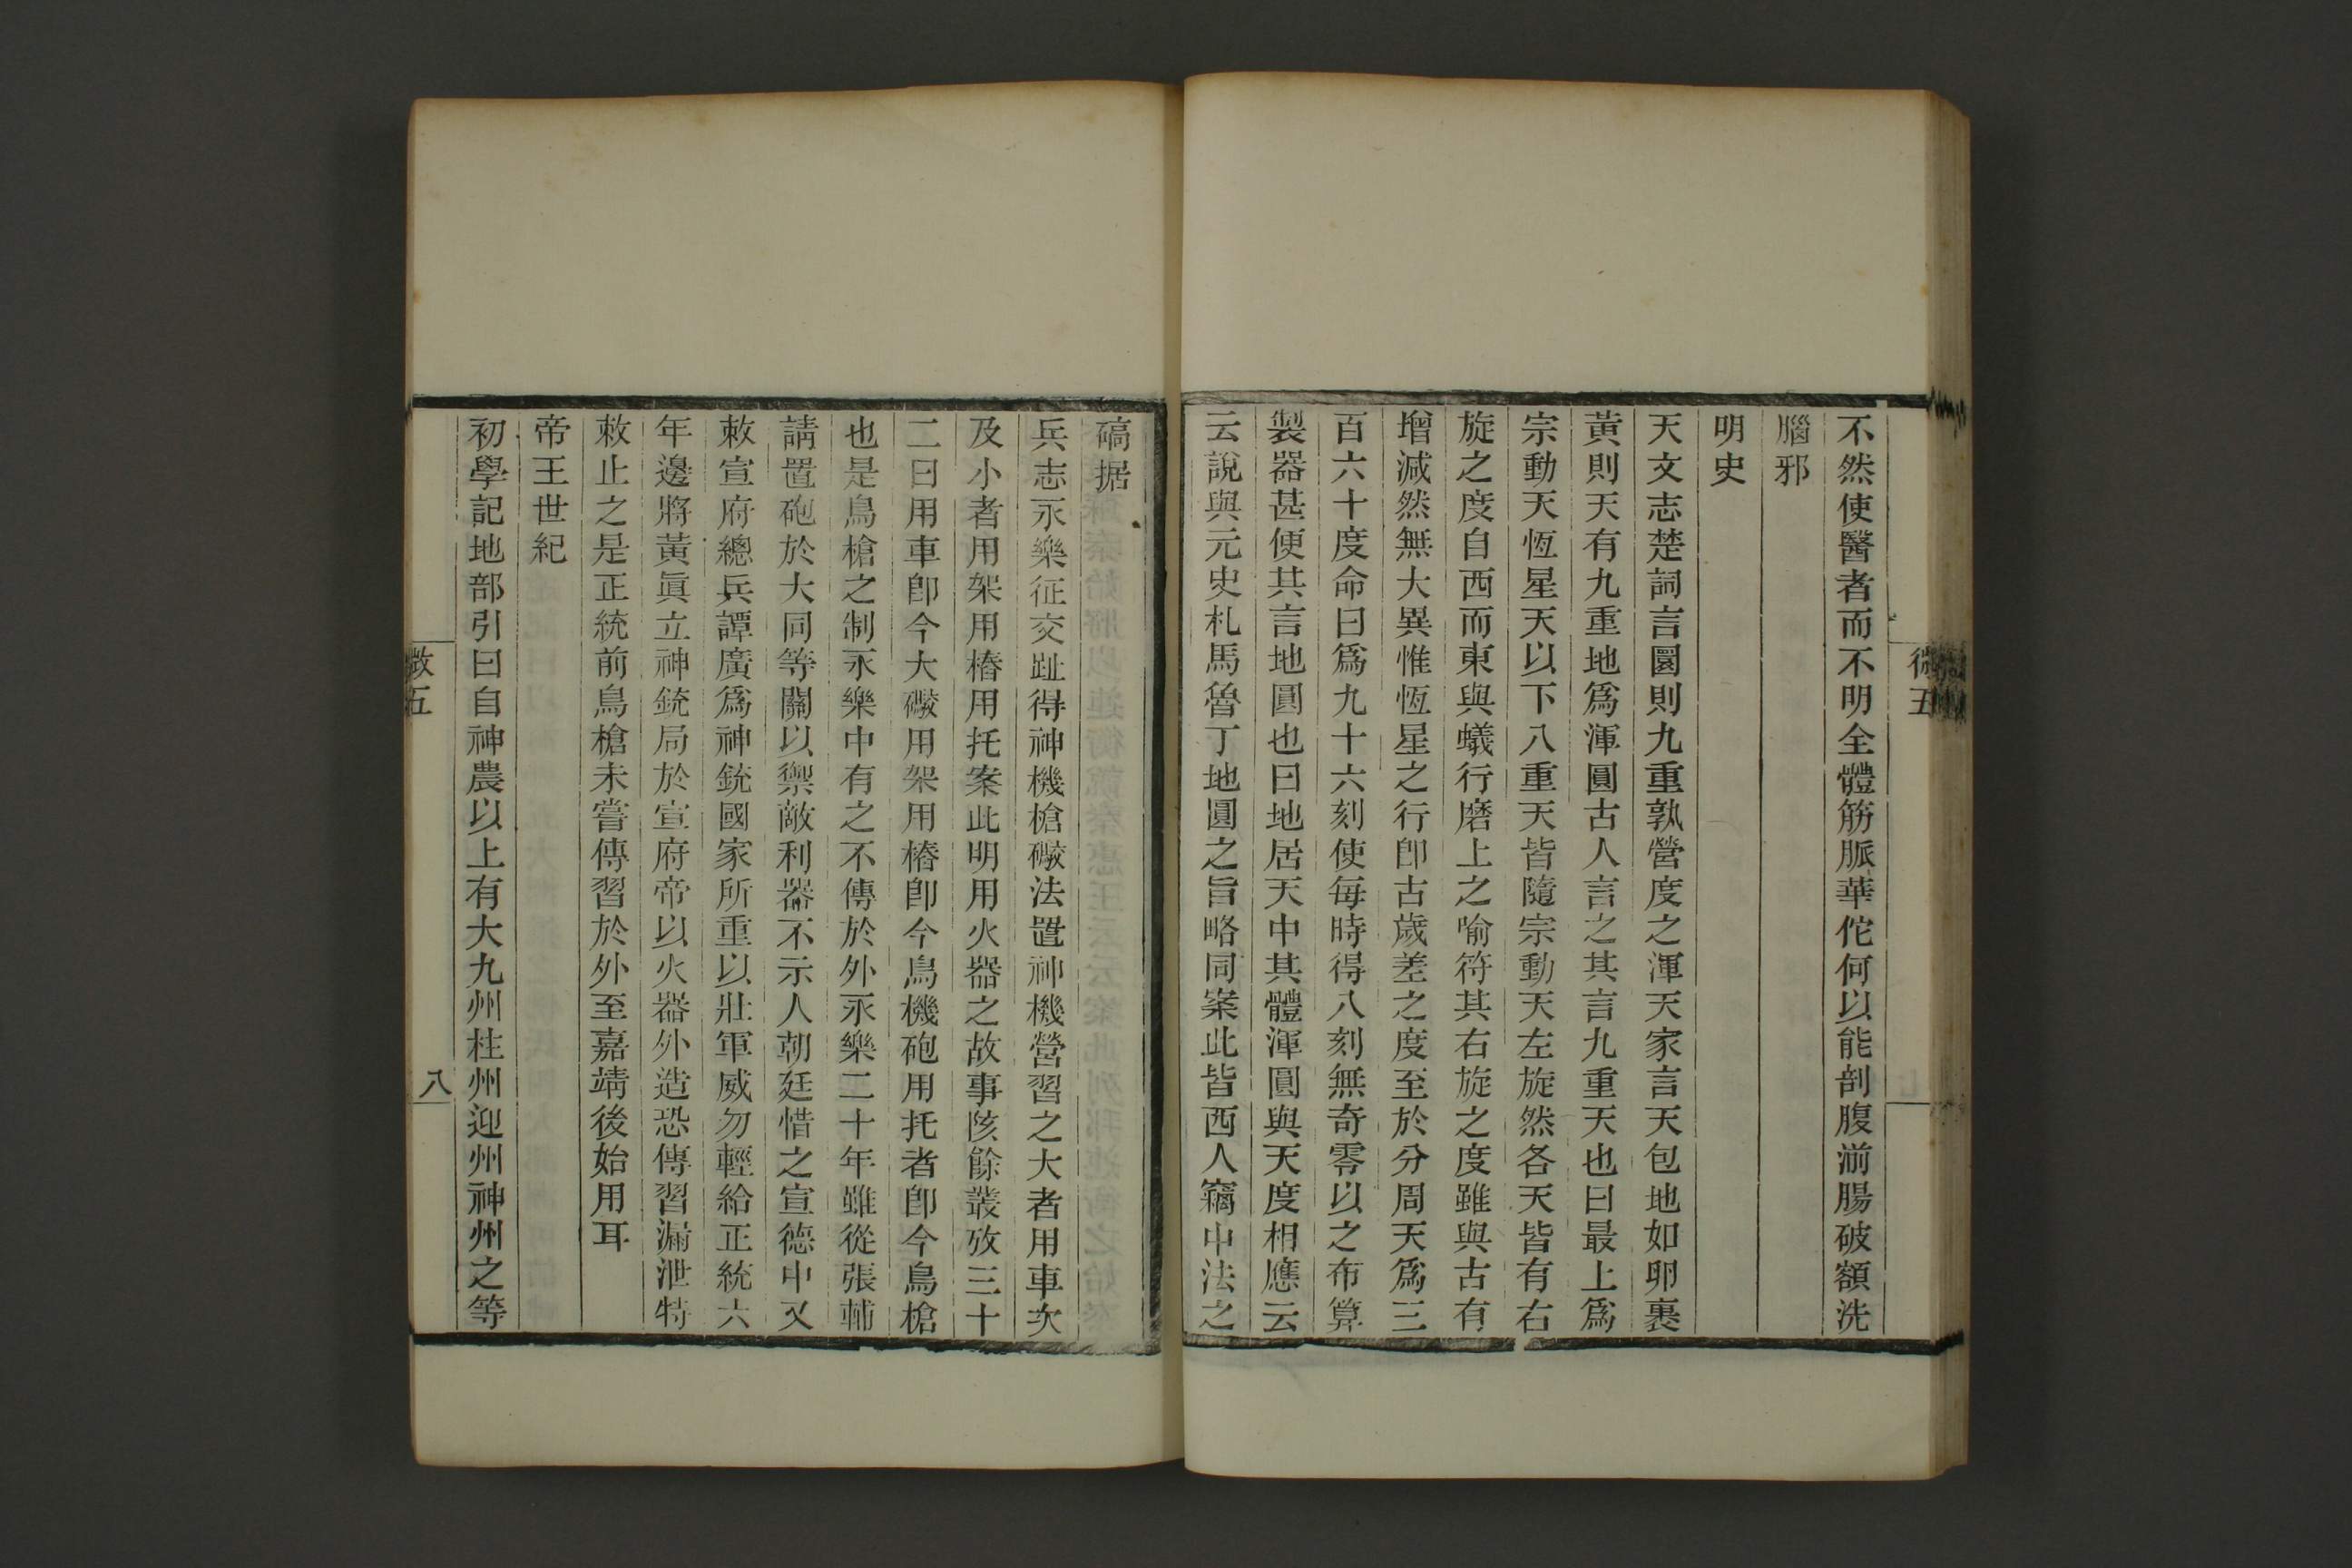 不然使醫者而不明全體筋脈華佗何以能剖腹湔腸破額洗
腦邪
明史
天文志楚詞言圜則九重孰營度之渾天家言天包地如卵裹
黃則天有九重地爲渾圓古人言之其言九重天也曰最上爲
宗動天恆星天以下八重天皆隨宗動天左旋然各天皆有右
旋之度自西而東與蟻行磨上之喻符其右旋之度雖與古有
增減然無大異惟恆星之行卽古歲差之度至於分周天爲三
百六十度命日爲九十六刻使每時得八刻無奇零以之布算
製器甚便其言地圓也曰地居天中其體渾圓與天度相應云
云說與元史札馬魯丁地圓之旨略同案此皆西人竊中法之
碻据
兵志永樂征交趾得神機槍礮法置神機營習之大者用車次
及小者用架用樁用托案此明用火器之故事陔餘叢攷三十
二曰用車卽今大礮用架用樁卽今鳥機砲用托者卽今鳥槍
也是鳥槍之制永樂中有之不傳於外永樂二十年雖從張輔
請置砲於大同等關以禦敵利器不示人朝廷惜之宣德中又
敕宣府總兵譚廣爲神銃國家所重以壯軍威勿輕給正統六
年邊將黃眞立神銃局於宣府帝以火器外造恐傳習漏泄特
敕止之是正統前鳥槍未嘗傳習於外至嘉靖後始用耳
帝王世紀
初學記地部引曰自神農以上有大九州柱州迎州神州之等
微五
八